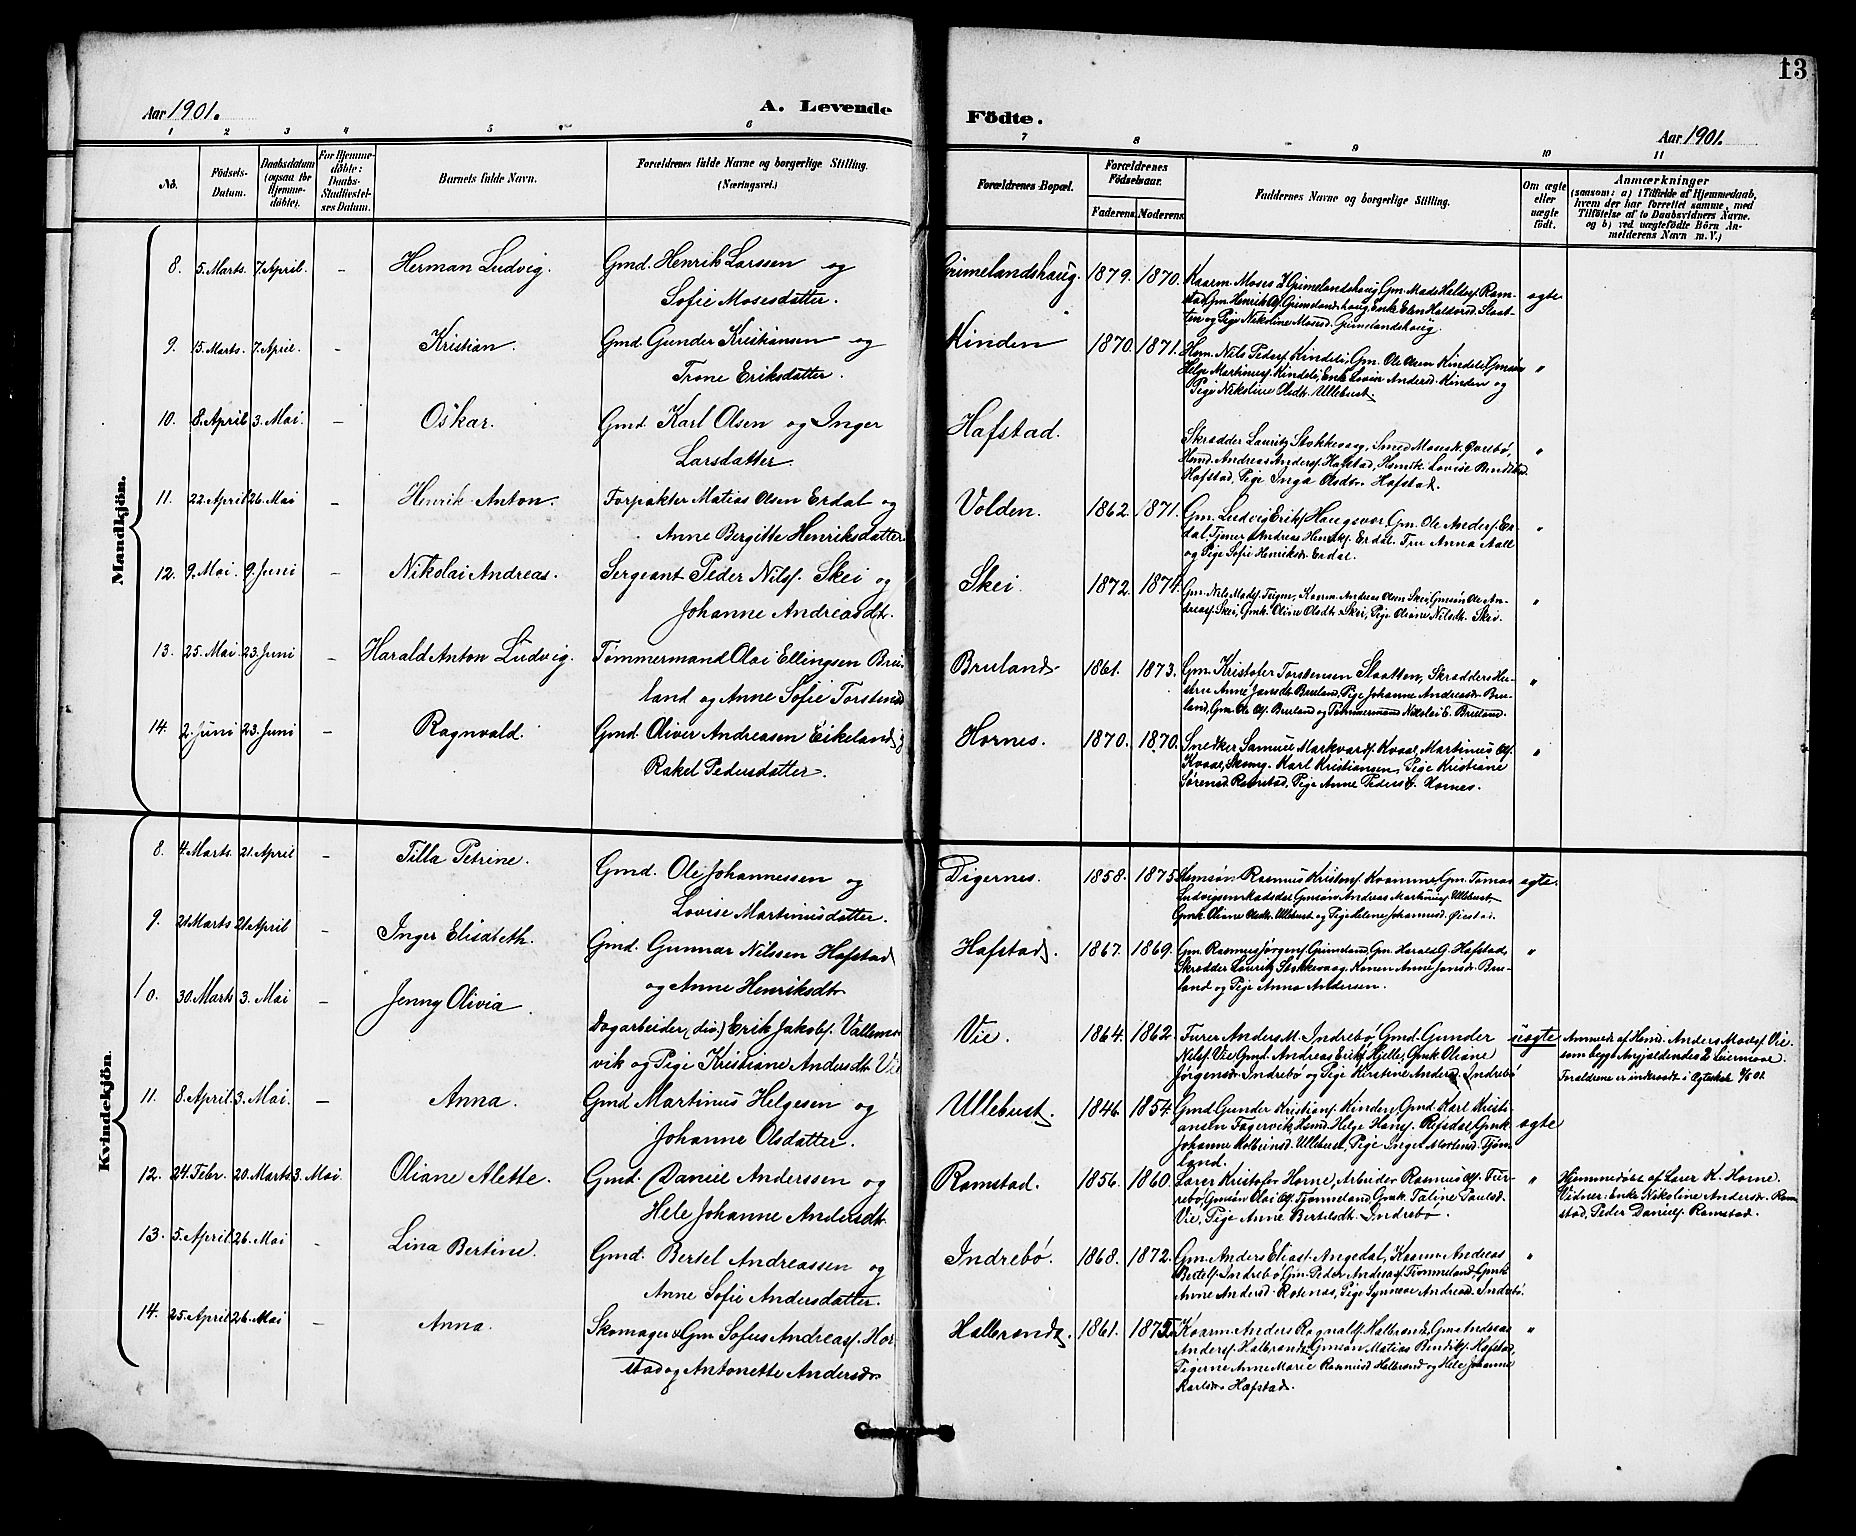 13
Aar 1901.
A. Levende
Födte.
Aar 1901.
1 2 3 4 5 6 7 8 9 10 11
No.
Födsels-
Datum.
Daabsdatum
(ogsaa for
Hjemme-
döbte).
For Hjemme-
döbte:
Daabs-
Stadfæstel-
ses Datum.
Barnets fulde Navn.
Forældrenes fulde Navne og borgerlige Stilling.
(Næringsvei.)
Forældrenes Bopæl.
Forældrenes
Födselsaar.
Faderens. Moderens.
Faddernes Navne og borgerlige Stilling.
Om ægte
eller
uægte
födt.
Anmærkninger
(saasom: a) i Tilfælde af Hjemmedaab,
hvem der har forrettet samme, med
Tilföielse af to Daabsvidners Navne,
og b) ved uægtefödte Börn An-
melderens Navn m. V.)
Mandkjön.
8. 5. Marts. 7 April. - Herman Ludvig. Gmd. Henrik Larssen og
Sofie Mosesdatter.
Grimelandshaug. 1879. 1870. Kaarm. Moses J. Grimelandshaug, Gm. Mads Haldorf. Ram-
stad, Gm. Henrik Of. Grimelandshaug, Enke Elen Haldorsd. Slaat-
ten og Pige Nikoline Mosesd. Grimelandshaug. ægte
9. 15. Marts. 7. April. - Kristian. Gmd. Gunder Kristiansen og
Trone Eriksdatter.
Kinden 1870. 1871. Hsm. Nils Pedersf. Kindeli, Gm. Ole Olsen Kindeli, Gmsøn
Helge Martinusf. Kindeli, Enke Lovise Andersd. Kinden og
Pige Nikoline Olsdtr. Ullebust. "
10. 8. April 3. Mai. - Oskar. Gmd. Karl Olsen og Inger
Larsdatter.
Hafstad. Skrædder Lauritz Stokkevaag, Smed Moses K. Øvrebø,
Hsmd. Andreas Andersf. Hafstad, Hsmdk. Lovise Bendiksd.
Hafstad, Pige Inga Olsdtr. Hafstad. "
11. 22. April 26. Mai - Henrik Anton. Forpakter Matias Olsen Erdal og
Anne Bergitte Henriksdatter
Volden. 1862. 1871. Gm. Ludvig Erikf. Haugsvær, Gm. Ole Andersf. Er-
dal, Tjener Andreas Henrikf. Erdal. Fru Anna Aall
og Pige Sofie Henriksdr. Erdal. "
12. 9. Mai. 9. Juni - Nikolai Andreas. Sergeant Peder Nilsf. Skei og
Johanne Andreasdtr.
Skei 1872. 1874. Gm. Nils Madsf. Teigne, Kaarm. Andreas Olsen Skei, Gmsøn Ole An-
dreasf. Skei, Gmk. Oline Olsdtr. Skei, Pige Oliane Nilsdtr. Skei. "
13. 25. Mai. 23. Juni - Harald Anton Ludvig. Tømmermand Olai Ellingsen Bru-
land og Anne Sofie Torstensd.
Bruland. 1861. 1873. Gm. Kristofer Torstensen Slaatten, Skrædders Hu-
stru Anne Jansdtr. Bruland, Pige Johanne Andreasdr. Bru-
land, Gm. Ole Of. Bruland og Tømmermand Nikolai E. Bruland. "
14. 2. Juni 23. Juni - Ragnvald. Gmd. Oliver Andreasen Eikeland &
Rakel Pedersdatter.
Hornes. 1870. 1870. Snedker Samuel Markvardf. Kvaal, Martinus Of.
Kvaal, Karl Kristiansen, Pige Kristiane
Sørensd. Ramstad, Pige Anne Pedersd. Hornes. "
Kvindekjön.
8. 4. Marts. 21. April - Tilla Petrine. Gmd. Ole Johannessen og
Lovise Martinusdatter.
Digernes. 1858. 1875. Hsmsøn Rasmus Kristenf. Kvamme, Gm. Tomas
Ludvigsen Madsdal, Gmsøn Andreas Martinusf. Ullebust,
Gmk. Oliane Olsdtr. Ullebust og Pige Helene Johannesd. Øiestad. ægte.
9. 21. Marts 21. April - Inger Elisabeth. Gmd. Gunnar Nilssen Hafstad
og Anne Henriksdtr.
Hafstad. 1867. 1869. Gm. Rasmus Jørgenf. Grimeland, Gm. Harald G. Hafstad,
Skrædder Lauritz Stokkevaag, Konen Anne Jansdr. Bru-
land og Pige Anna Andersen. "
10. 30. Marts 3. Mai - Jenny Olivia. Dagarbeider (div.) Erik Jakobf. Vallem-
vik og Pige Kristiane Andersdtr. Vie
Vie. 1864. 1862. Furer Anders M. Indrebø, Gmd. Gunder
Nilsf. Vie, Gmd. Andreas Erikf. Hjelle, Gmk. Oliane
Jørgensdr. Indrebø og Pige Kirstine Andersd. Indrebø uægte Anmeldt af Hsmd. Anders Mosesf. Vie.
som begges Angjældendes 2 Leiermaal.
Forældrene er indtraadt i Ægteskab 9/6 01.
11. 8. April 3. Mai. - Anna. Gmd. Martinus Helgesen og
Johanne Olsdatter.
Ullebust. 1846. 1854. Gmd. Gunder Kristianf. Kinden, Gmd. Karl Kristi-
ansen Fagervik, Hsmd. Helge Hansf. Reisdal, Gmk.
Johanne Kolbeinsd. Ullebust, Pige Inger Mortensd. Tøn-
land. ægte
12. 24. Febr. 20. Marts 3. Mai. Oliane Alette. Gmd. Daniel Anderssen og
Hele Johanne Andersdtr.
Ramstad. 1856. 1860. Lærer Kristofer Horne, Arbeider Rasmus Of. Fure-
bø, Gmsøn Olai Of. Tømmeland, Gmk. Taline Paulsd.
Vie, Pige Anne Bertelsdtr. Indrebø. " Hjemmedøbt af Lærer K. Horne.
Vidner: Enke Nikoline Andersdr. Ram-
stad, Peder Danielf. Ramstad.
13. 5. April 26. Mai - Lina Bertine. Gmd. Bertel Andreassen og
Anne Sofie Andersdatter.
Indrebø. 1868. 1872. Gm. Anders Eliasf. Angedal, Kaarm. Andreas
Bertelf. Indrebø, Gm. Peder Andreasf. Tømmeland, Gmk.
Anne Andersd. Rotenæs, Pige Synneve Andreasd. Indrebø. "
14. 25. April 26. Mai - Anna. Skomager & Gm. Sofus Andreasf. Hor-
stad og Antonette Andersdr.
Halbrands. 1861. 1875. Kaarm. Anders Ragnalf. Halbrand, Gm. Andreas
Andersf. Halbrand, Gmsøn Matias Bendikf. Hafstad,
Pigerne Anne Marie Rasmusd. Halbrand og Hele Johanne
Karlsdr. Hafstad. "